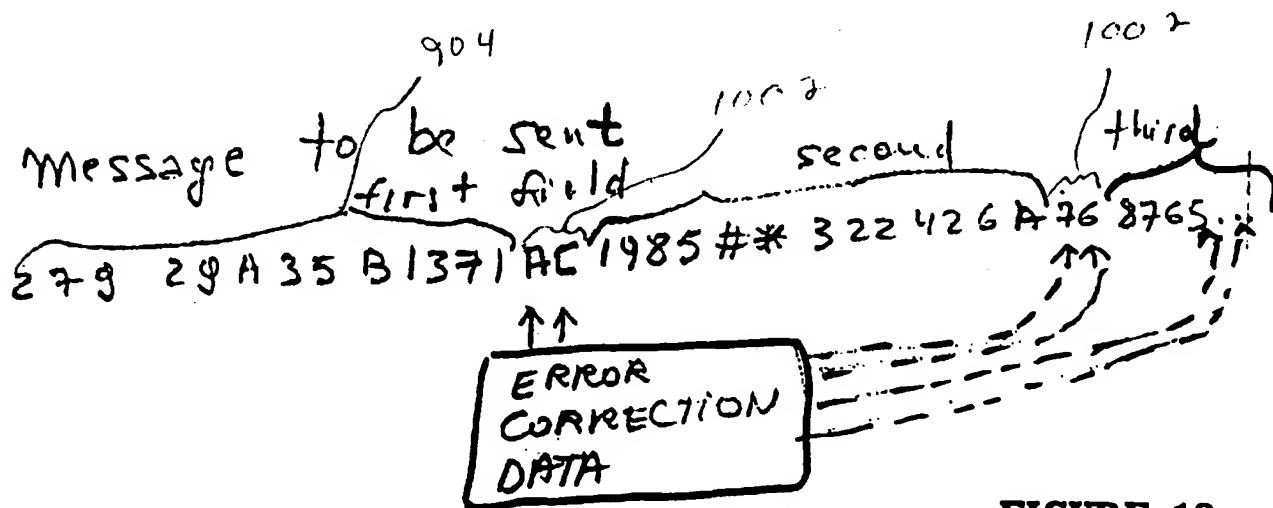 904
1002
1002
Message to be sent
first field
second
third
279 29A35B1371AC1985#*322426A768765...
ERROR
CORRECTION
DATA